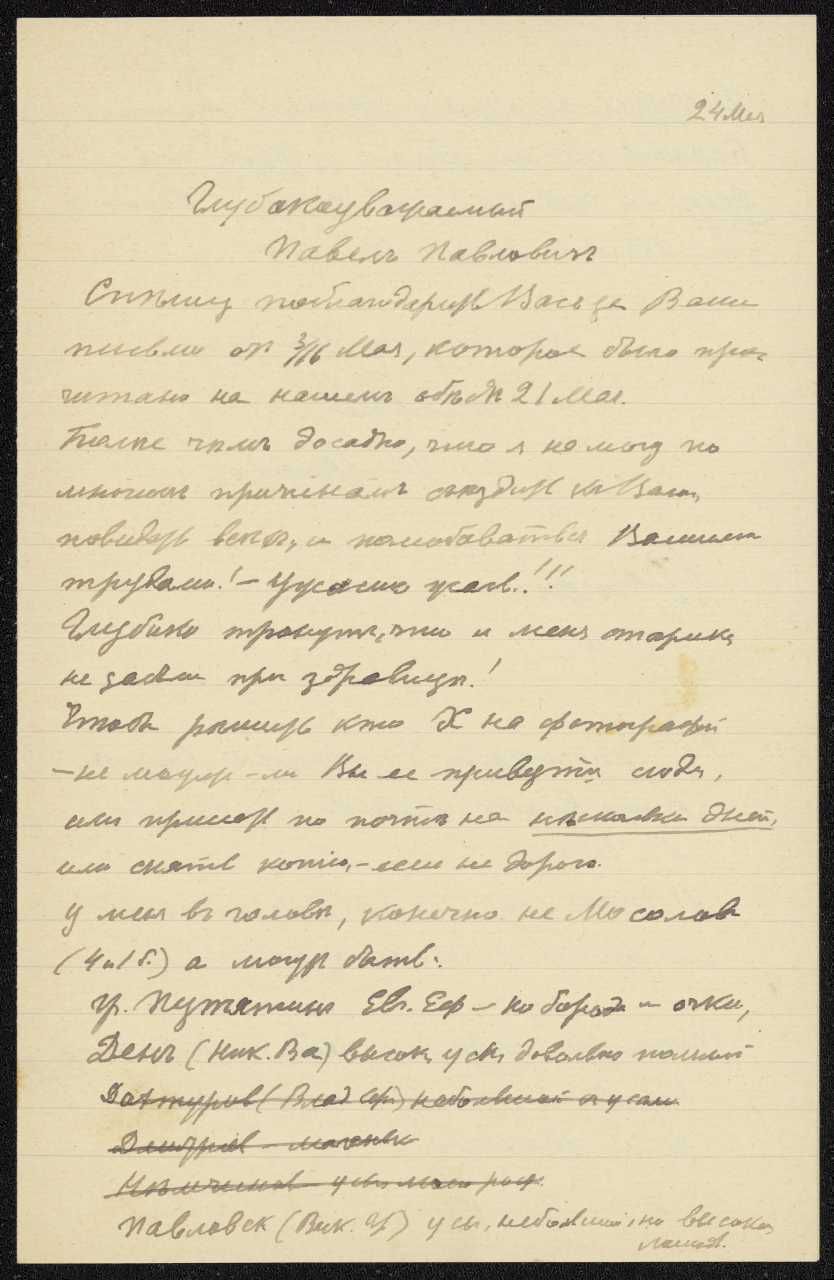 24 Мая
Глубокоуважаемый
Павелъ Павловичъ
Спѣшу поблагодарить Васъ за Ваше
письмо от 3/16 Мая, которое было про-
читано на нашемъ обѣдѣ 21 Мая.
Болѣе чѣмъ досадно, что я не могу по
многимъ причинамъ съѣздить къ Вамъ,
повидать всѣхъ, и полюбоваться Вашими
трудами! – Ужасно жаль..!!!
Глубоко тронутъ, что и меня старика
не забыли при здравицѣ!
Чтобъ рѣшить кто X на фотографіи
– не можете – ли Вы ее привезти сюда,
или прислать по почтѣ на нѣсколько дней,
или снять копію, – если не дорого.
У меня въ головѣ, конечно не Мосолов
(4 и 1 б.) а можетъ быть:
гр. Путятинъ Евг. Еф – но борода и очки,
Денъ (Ник. Ва) высок, усы, довольно полный
(Влад небольшой усами
Дмитріев – маленьк
усы мало рост
Павловск (Вик. У) усы, небольшіе, но высокая
лошадь.